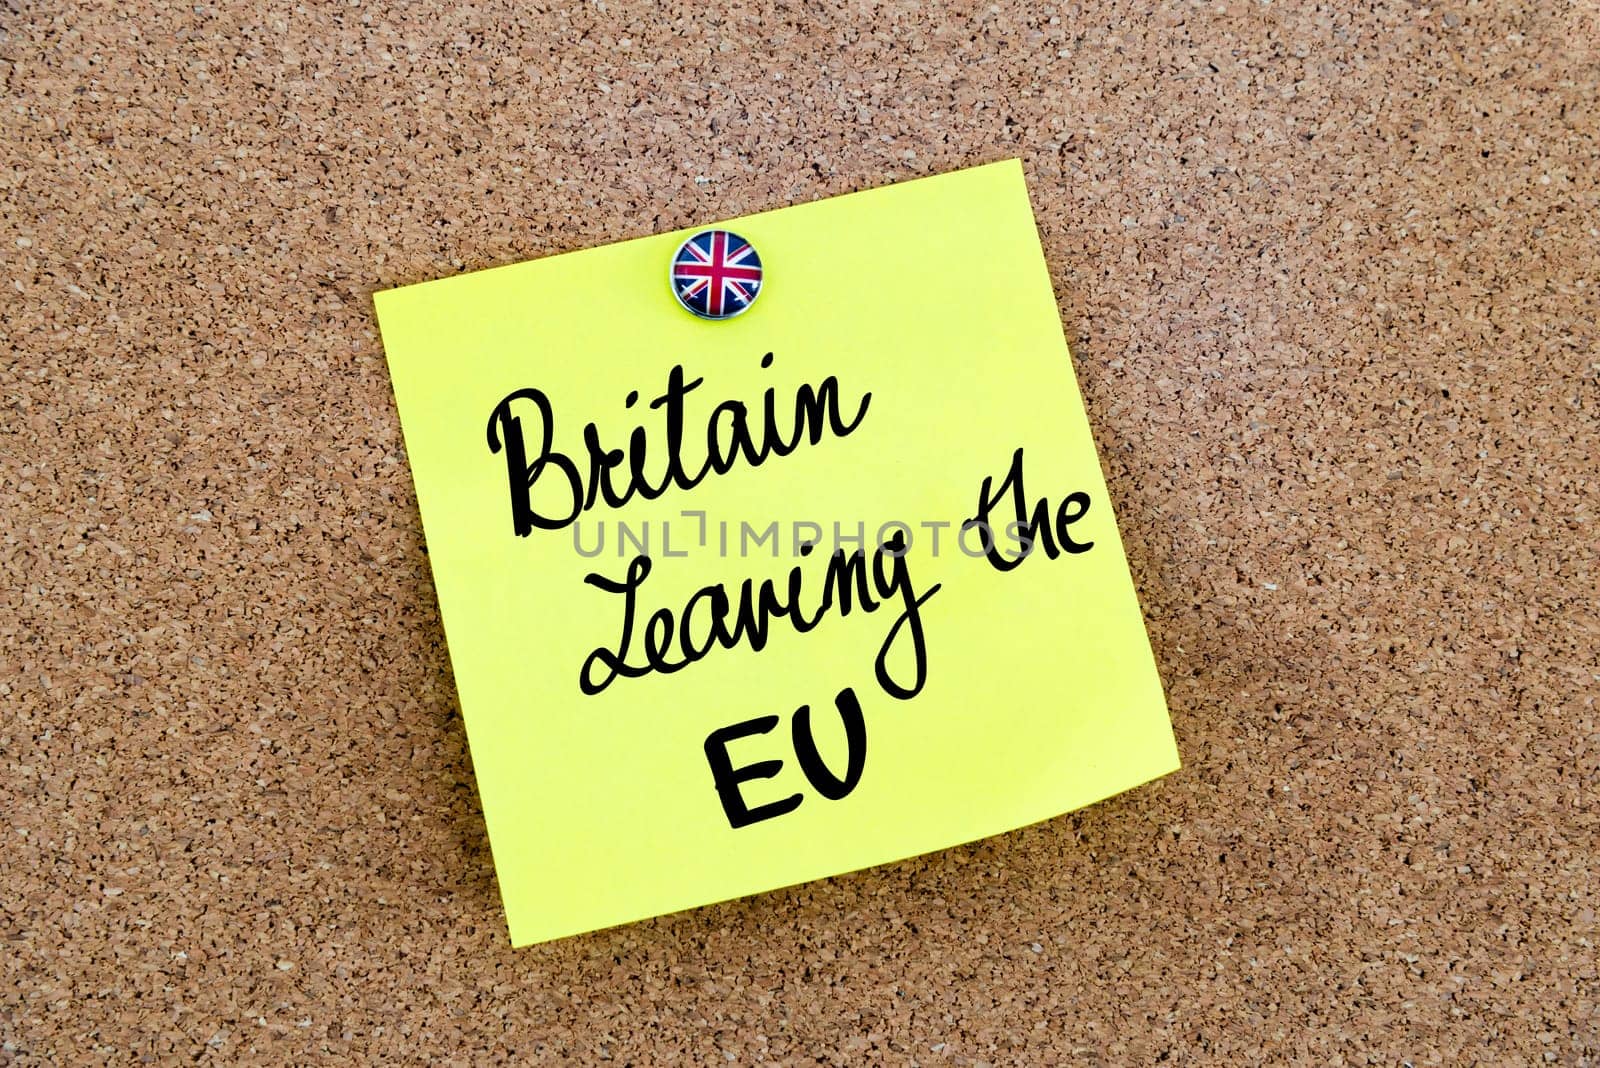 Britain
Leaving the
EU
UNLIMPHOTOS